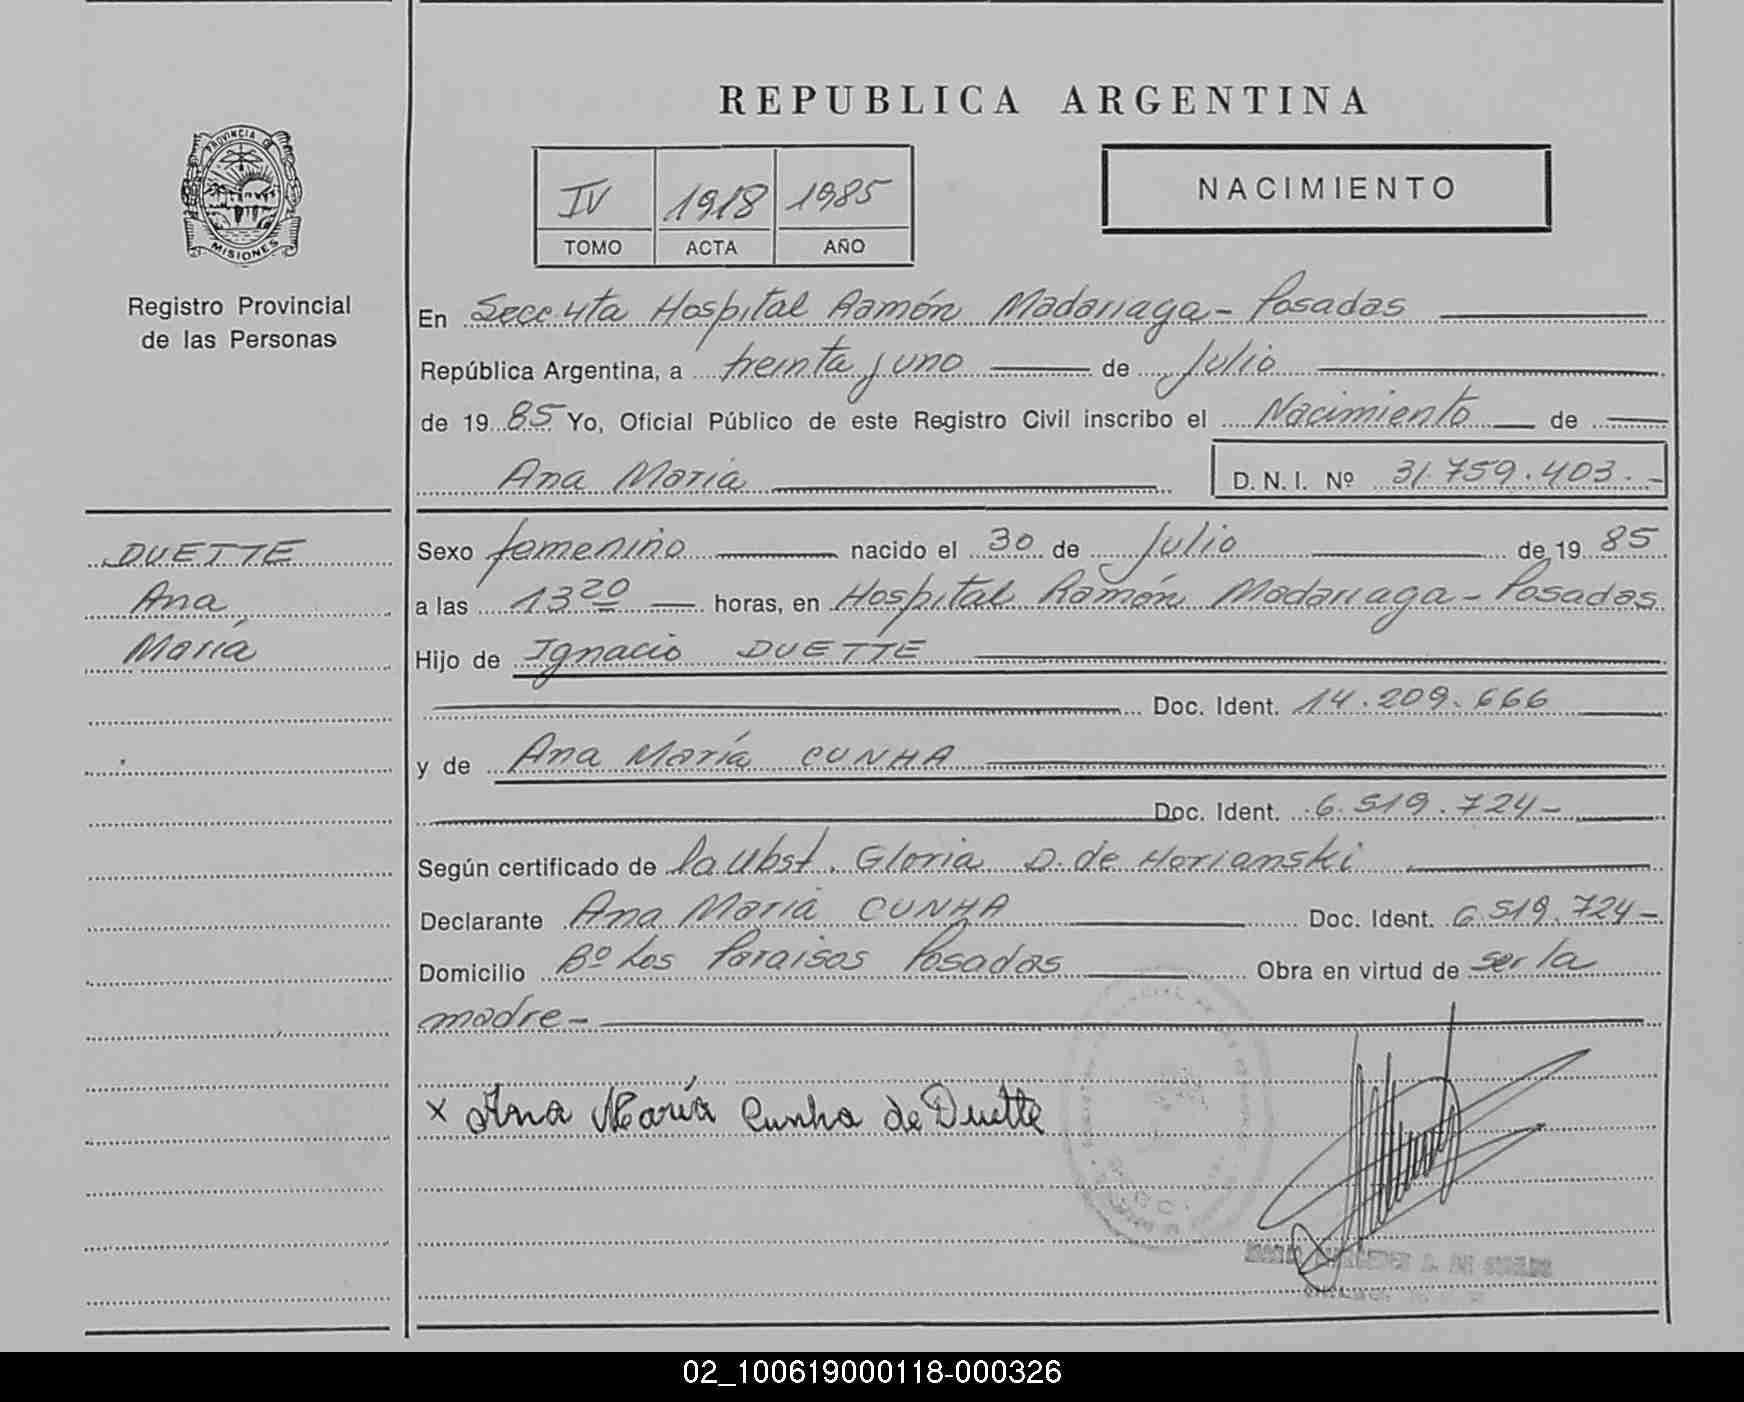 PROVINCIA DE
MISIONES
Registro Provincial
de las Personas
DUETTE
Ana
María
REPUBLICA ARGENTINA
IV 1918 1985
TOMO ACTA AÑO
NACIMIENTO
En Secc 4ta Hospital Ramón Madariaga - Posadas
República Argentina, a treinta y uno de Julio
de 1985 Yo, Oficial Público de este Registro Civil inscribo el Nacimiento de
Ana María D. N. I. Nº 31.759.403.-
Sexo femenino nacido el 30 de Julio de 1985
a las 13 20 horas, en Hospital Ramón Madariaga - Posadas
Hijo de Ignacio DUETTE
Doc. Ident. 14.209.666
y de Ana María CUNHA
Doc. Ident. 6.519.724-
Según certificado de la Obst. Gloria D. de Horianski
Declarante Ana María CUNHA Doc. Ident. 6.519.724-
Domicilio Bº Los Paraisos Posadas Obra en virtud de ser la
madre-
x Ana María Cunha de Duette
02_100619000118-000326